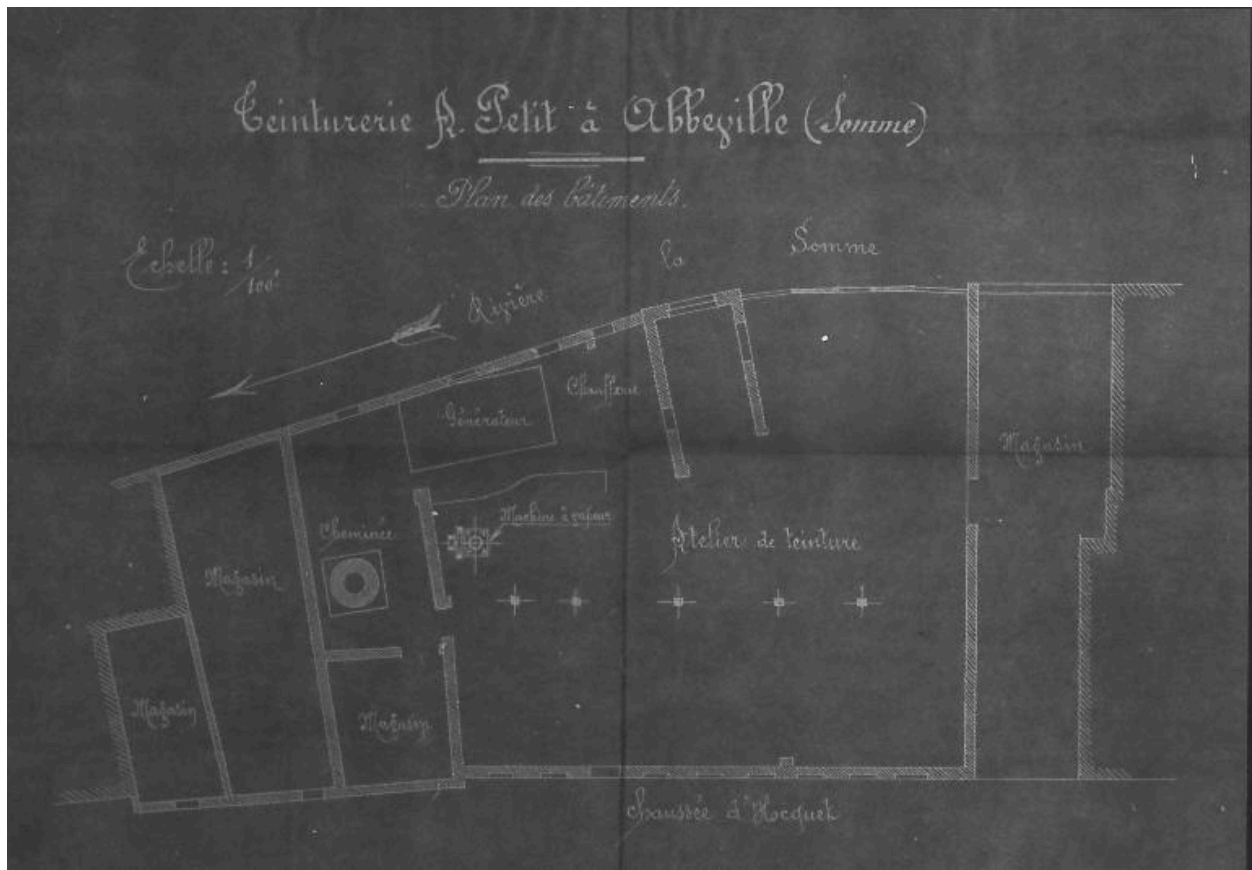 Teinturerie A. Petit à Abbeville (Somme)
Plan des bâtiments.
Echelle: 1/100e
Rivière la Somme
Chaufferie
Générateur
Magasin
Machine à vapeur
Cheminée
Atelier de teinture
Magasin
Magasin
Magasin
Chaussée d'Hocquet